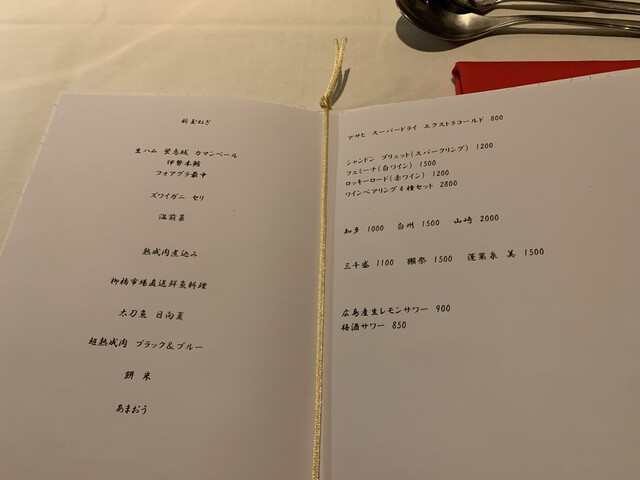 新玉ねぎ
生ハム 蛍烏賊 カマンベール
伊勢本鮪
フォアグラ最中
ズワイガニ セリ
温前菜
熟成肉煮込み
柳橋市場直送鮮魚料理
太刀魚 日向夏
超熟成肉 ブラック&ブルー
餅 米
あまおう
アサヒ スーパードライ エクストラコールド 800
シャンドン ブリュット(スパークリング) 1200
フェミーナ(白ワイン) 1500
ロッキーロード(赤ワイン) 1200
ワインペアリング4種セット 2800
知多 1000 白州 1500 山崎 2000
三千盛 1100 獺祭 1500 蓬莱泉 美 1500
広島産生レモンサワー 900
梅酒サワー 850